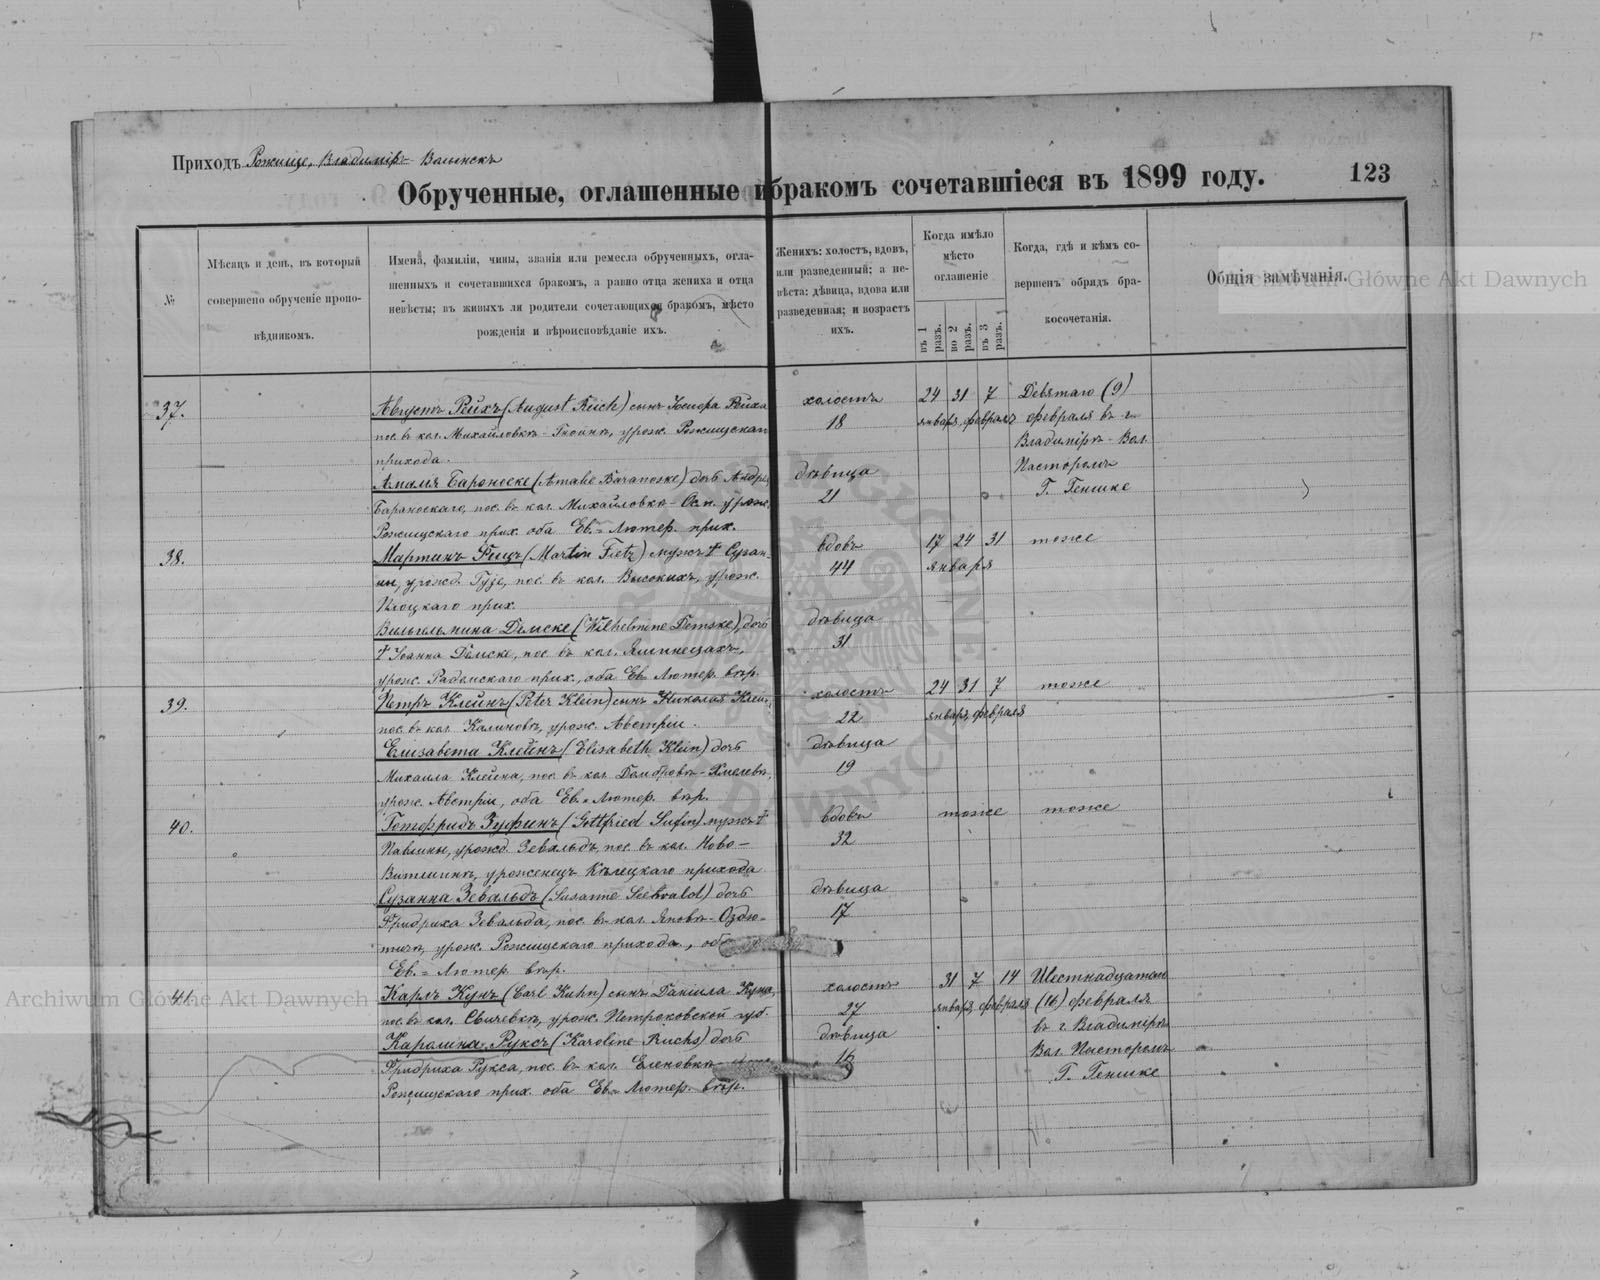 Приходъ Рожище, Владимір- Волынскъ
Обрученные, оглашенные и бракомъ сочетавшіеся въ 1899 году.
123
№
Мѣсяцъ и день, въ который
совершено обрученіе пропо-
вѣдникомъ.
Имена, фамиліи, чины, званія или ремесла обрученныхъ, огла-
шенныхъ и сочетавшихся бракомъ, а равно отца жениха и отца
невѣсты; въ живыхъ ли родители сочетающихся бракомъ, мѣсто
рожденія и вѣроисповѣданіе ихъ.
Женихъ: холостъ, вдовъ,
или разведенный; а не-
вѣста: дѣвица, вдова или
разведенная; и возрастъ
ихъ.
Когда имѣло
мѣсто
оглашеніе
въ 1 разъ.
во 2 разъ.
въ 3 разъ.
Когда, гдѣ и кѣмъ со-
вершенъ обрядъ бра-
косочетанія.
Общія замѣчанія.
37.
Августъ Рейхъ (August Reich) сынъ Іосифа Рейха
пос. въ кол. Михайловкѣ- урож. Рожищскаго
прихода.
Амалія Бараноске (Amalie Baranoske) дочь
Бараноскаго, пос. въ кол. Михайловкѣ- урож.
Рожищскаго прих. оба Ев.- Лютер. прих.
холостъ
18
дѣвица
21
24 31 7
января, февраля
Девятаго (9)
февраля въ г.
Владимірѣ- Вол.
Пасторомъ
Г. Генике
38.
Мартинъ Фецъ (Martin Fietz) мужъ † Сузан-
ны, урожд. Гузе, пос. въ кол. Высокихъ, урож.
Плоцкаго прих.
Вильгельмина Демске (Wilhelmine Demske), дочь
† Іоанна Демске, пос. въ кол.
урож. Радомскаго прих., оба Ев. Лютер. вѣр.
вдовъ
44
дѣвица
31
17 24 31
января
тоже
39.
Петръ Клейнъ (Peter Klein) сынъ Николая Клейна
пос. въ кол. Калиновкѣ, урож. Австріи.
Елизавета Клейнъ (Elisabeth Klein) дочь
Михаила Клейна, пос. въ кол. Домбровѣ-
урож. Австріи, оба Ев.- Лютер. вѣр.
холостъ
22
дѣвица
19
24 31 7
январ. февраля
тоже
40.
Готфридъ Зуфинъ (Gottfried Sufin) мужъ †
Павлины, урожд. Зевальдъ, пос. въ кол. Ново-
уроженецъ Кѣлецкаго прихода
Сузанна Зевальдъ (Susanne Seewald) дочь
Фридриха Зевальда, пос. въ кол. Яновкѣ- Оздю-
тичи, урож. Рожищскаго прихода, оба
Ев.- Лютер. вѣр.
вдовъ
32
дѣвица
17
тоже
тоже
41.
Карлъ Кунъ (Carl Kuhn) сынъ Даніила Куна,
пос. въ кол. Свичевкѣ, урож. Петроковской губ.
Каролина Руксъ (Karoline Ruchs) дочь
Фридриха Рукса, пос. въ кол. Еленовкѣ
Рожищскаго прих. оба Ев.- Лютер. вѣр.
холостъ
27
дѣвица
31 7 14
январ. февраля
Шестнадцатаго
(16) февраля
въ г. Владимірѣ
Вол. Пасторомъ
Г. Генике
Archiwum Główne Akt Dawnych
Archiwum Główne Akt Dawnych